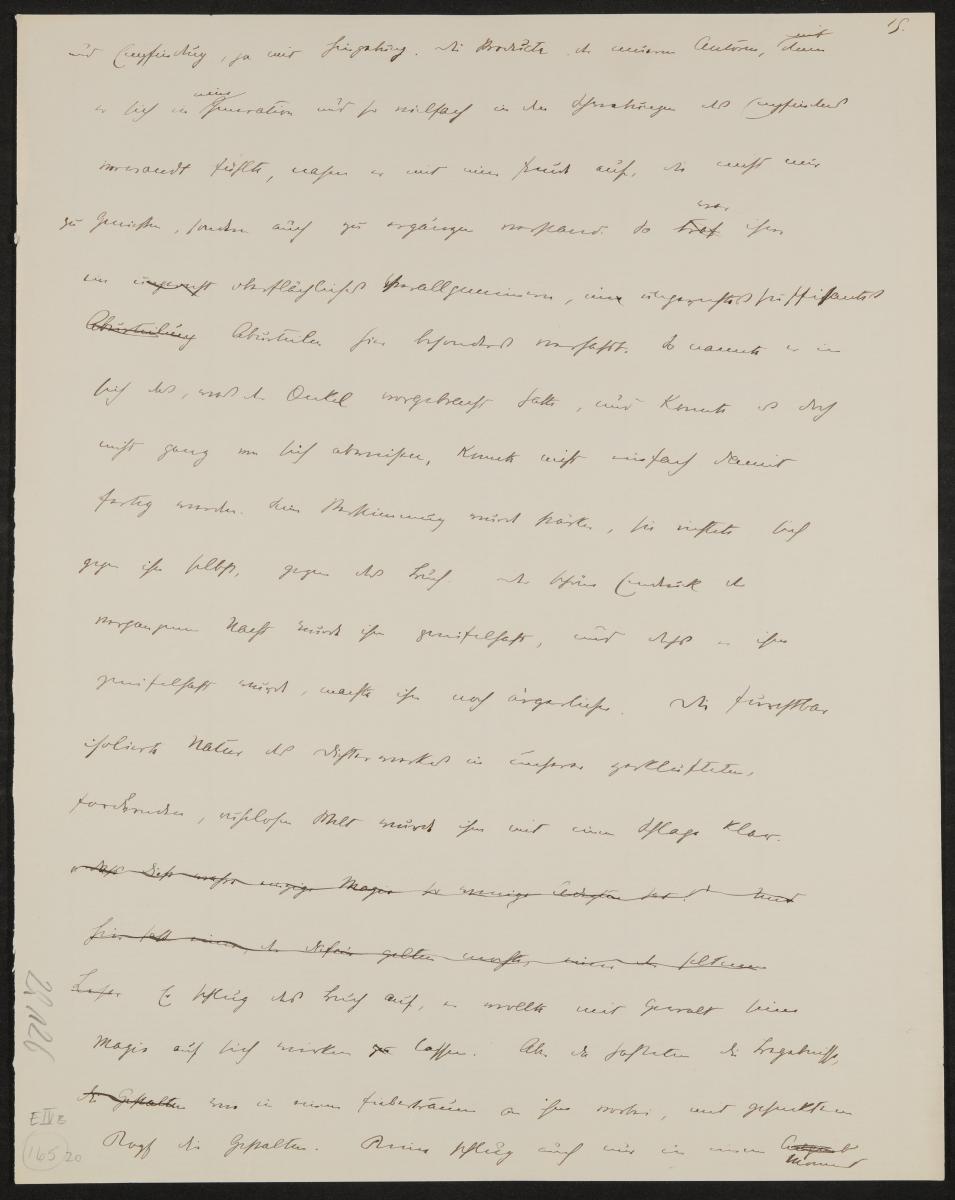 15.
und Empfindung, ja mit Hingebung. Die Produkte der neueren Autoren, mit denen
er sich in Generation und so vielfach in den Schwebungen des Empfindens
verwandt fühlte, nahm er mit einer Freude auf, die nicht nur
zu genießen, sondern auch zu ergänzen verstand. So war ihm
ein oberflächliches Verallgemeinern, ein süffisantes
Aburteilung Aburteilen hier besonders verhaßt. So nannte er in
sich das, was der Onkel vorgebracht hatte, und konnte es doch
nicht ganz von sich abweisen, konnte nicht einfach damit
fertig werden. Seine Verstimmung wurde stärker, sie richtete sich
gegen ihn selbst, gegen das Buch. Der schöne Eindruck der
vergangenen Nacht wurde ihm zweifelhaft, und daß er ihm
zweifelhaft wurde, machte ihn noch ärgerlicher. Die furchtbar
isolierte Natur des Dichterwerkes in unserer zerklüfteten,
fordernden, ruhlosen Welt wurde ihm mit einem Schlage klar.
Magie so wenige
gelten mochte, einer der seltenen
Leser Er schlug das Buch auf, er wollte mit Gewalt seine
Magie auf sich wirken zu lassen. Aber da hasteten die Begebnisse,
die Gestalten wie in einem Fiebertraum an ihm vorbei, mit gesenktem
Kopf die Gestalten. Keine schlug auch nur in einem Moment
29126
E IV B
165 20